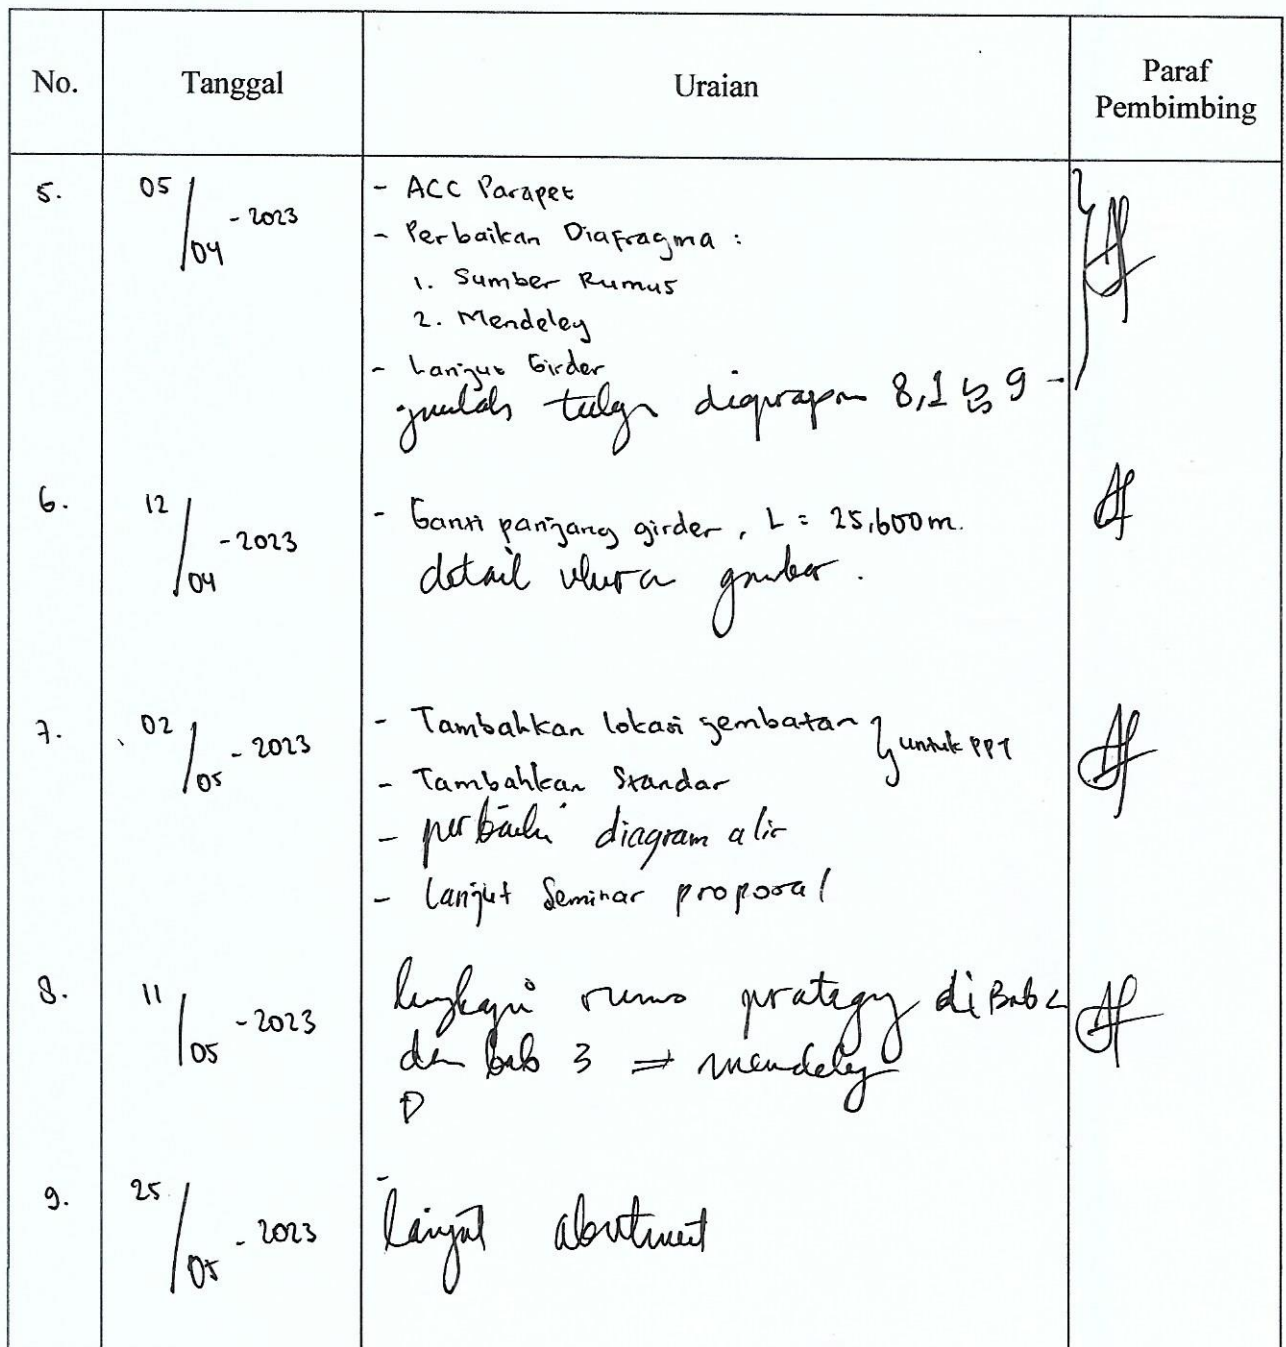 No. Tanggal Uraian Paraf Pembimbing
5. 05/04 - 2023
- ACC Parapet
- Perbaikan Diafragma :
1. Sumber Rumus
2. Mendeley
- Lanjut Girder
jumlah 8,1 9
6. 12/04 - 2023
- Ganti panjang girder, L = 25,600 m.
detail gambar.
7. 02/05 - 2023
- Tambahkan lokasi jembatan } untuk PPT
- Tambahkan Standar
- perbaiki diagram alir
- Lanjut Seminar proposal
8. 11/05 - 2023
lengkapi rumus di Bab 2
dan bab 3 ⇒ mendeley
9. 25/05 - 2023
- lanjut abutment